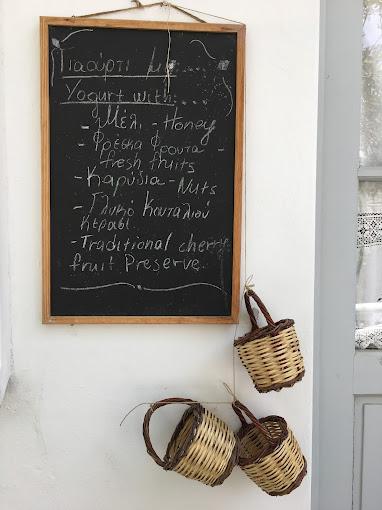 Γιαούρτι με....
Yogurt with....
- Μέλι - Honey
- Φρέσκα Φρουτα -
fresh fruits
- Καρύδια - Nuts
- Γλυκό Κουταλιού
Κεράσι
- Traditional cherry
fruit Preserve